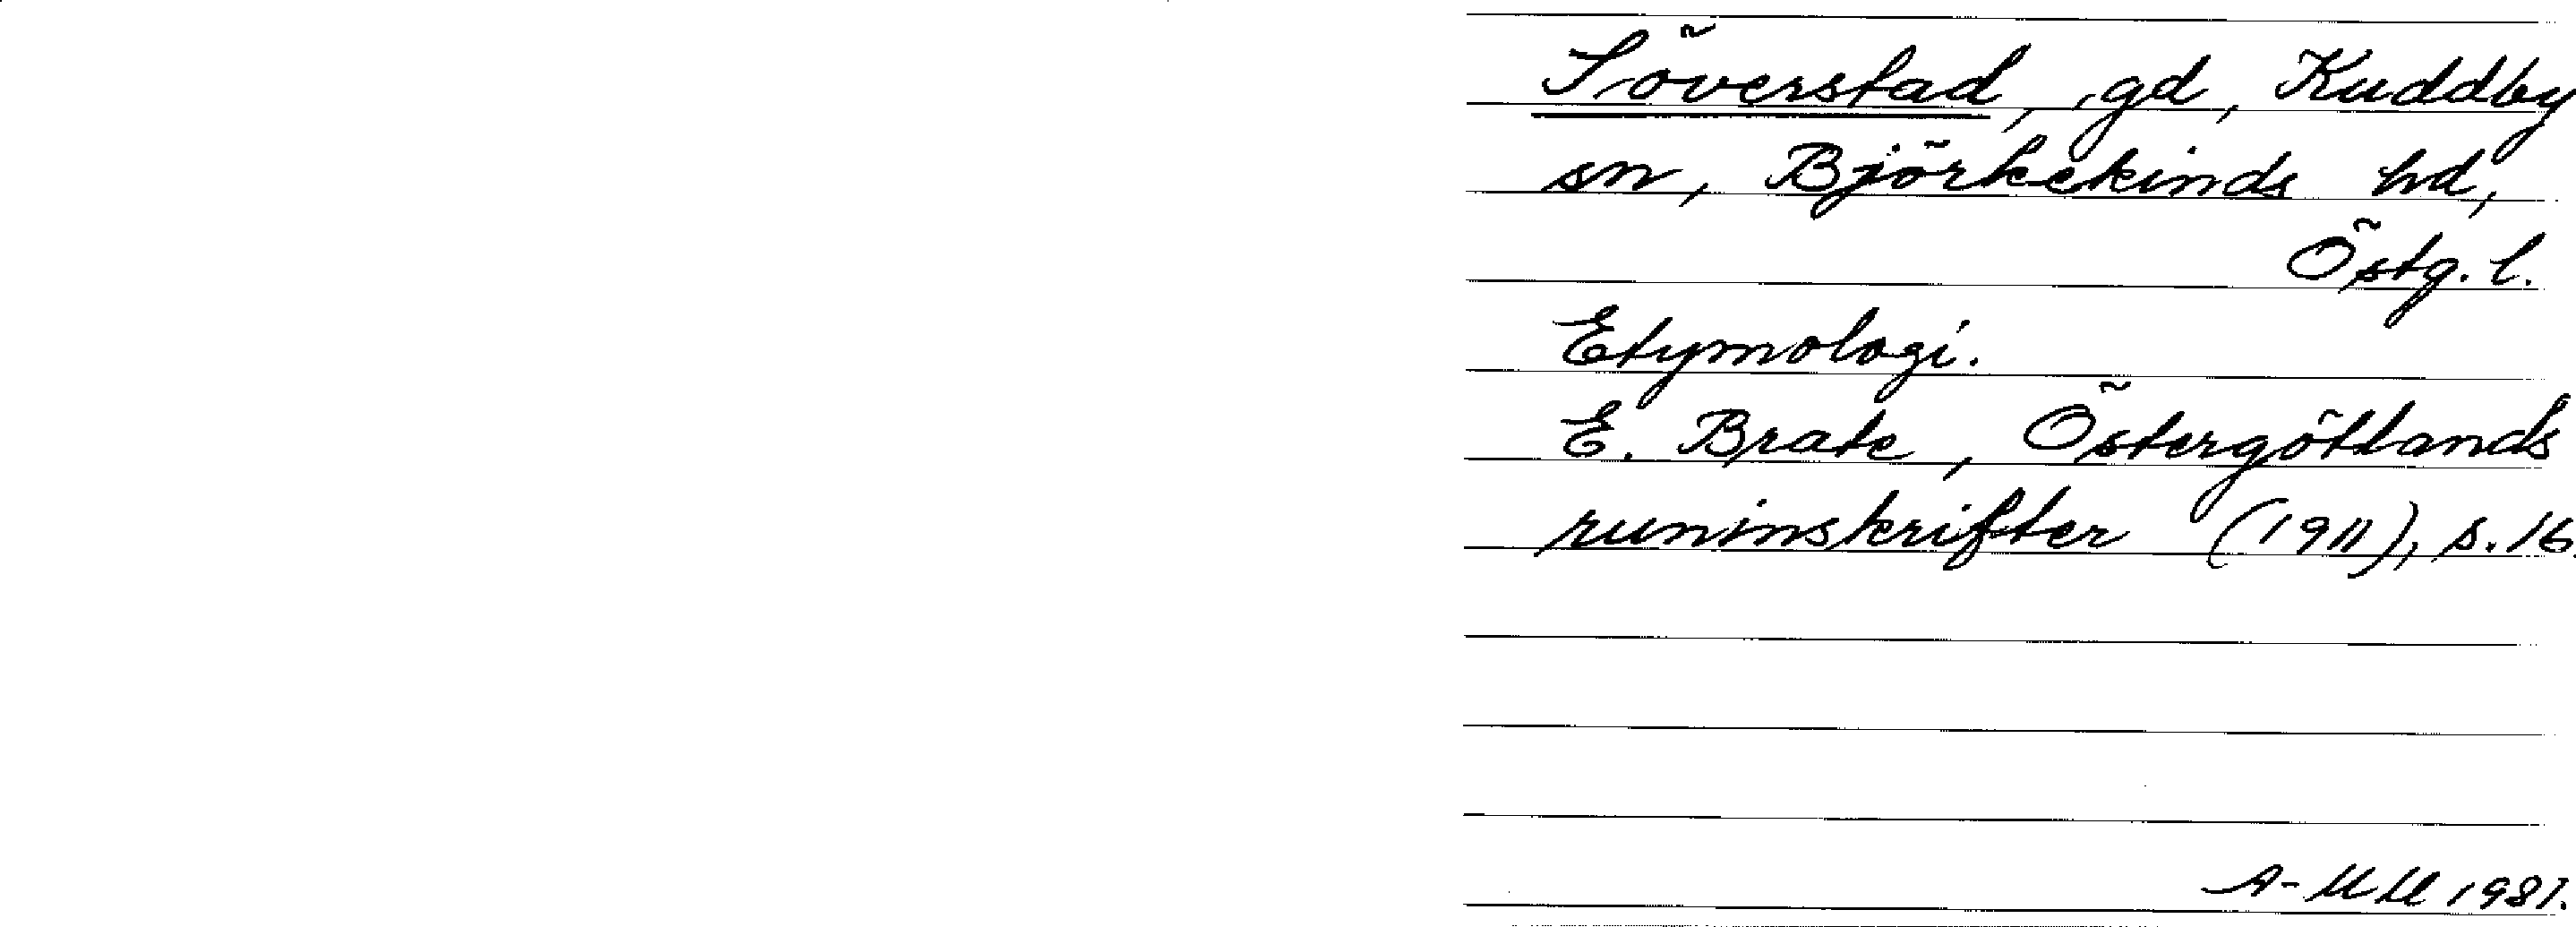 Söverstad, gd, Kuddby
sn, Björkekinds hd,
Östg. l.
Etymologi.
E. Brate, Östergötlands
runinskrifter (1911), s. 16.
A-MM 1981.